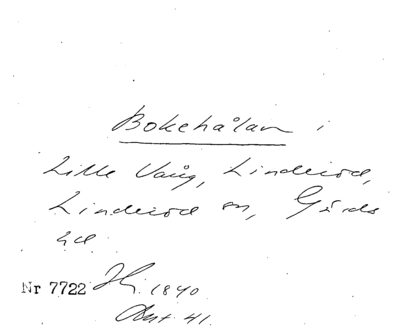 Bokehålan i
Lille Vång, Linderöd,
Linderöd sn, Gärds
hd
Nr 7722 1840
Ant. 41.